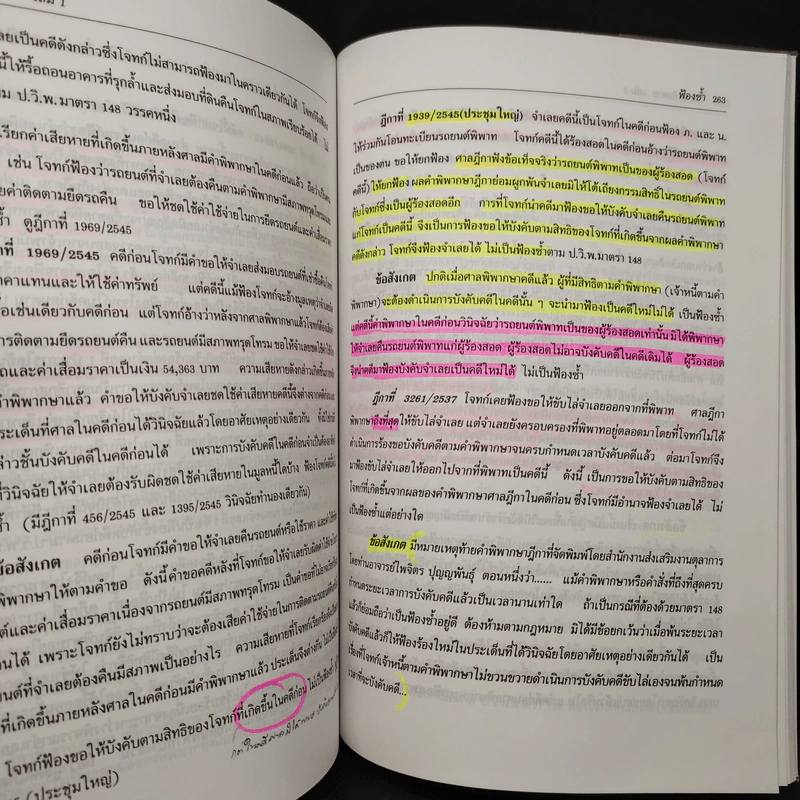 เล่ม 1
เลยเป็นคดีดังกล่าวซึ่งโจทก์ไม่สามารถฟ้องมาในคราวเดียวกันได้ โจทก์ฟ้อง
นี้ให้รื้อถอนอาคารที่รุกล้ำและส่งมอบที่ดินคืนโจทก์ในสภาพเรียบร้อยได้ ไม่
ป.วิ.พ.มาตรา 148 วรรคหนึ่ง
เรียกค่าเสียหายที่เกิดขึ้นภายหลังศาลมีคำพิพากษาในคดีก่อนแล้ว ถือว่าเป็นคน
เช่น โจทก์ฟ้องว่ารถยนต์ที่จำเลยต้องคืนตามคำพิพากษามีสภาพทรุดโทรม
ค่าติดตามยึดรถคืน ขอให้ชดใช้ค่าใช้จ่ายในการยึดรถยนต์และค่าเสื่อม
ดูฎีกาที่ 1969/2545
ที่ 1969/2545 คดีก่อนโจทก์มีคำขอให้จำเลยส่งมอบรถยนต์ที่เช่าซื้อคืน
คาแทนและให้ใช้ค่าทรัพย์ แต่คดีนี้แม้โจทก์จะอ้างมูลเหตุว่าจำเลย
เช่นเดียวกับคดีก่อน แต่โจทก์อ้างว่าหลังจากศาลพิพากษาแล้วโจทก์ต้อง
การติดตามยึดรถยนต์คืน และรถยนต์มีสภาพทรุดโทรม ขอให้จำเลยชดใช้ค่า
และค่าเสื่อมราคาเป็นเงิน 54,363 บาท ความเสียหายดังกล่าวเกิดขึ้นภาย
คำพิพากษาแล้ว คำขอให้บังคับจำเลยชดใช้ค่าเสียหายคดีนี้จึงต่างจากคดีก่อนและ
ประเด็นที่ศาลในคดีก่อนได้วินิจฉัยแล้วโดยอาศัยเหตุอย่างเดียวกัน ทั้งมิใช่
ล่าวชั้นบังคับคดีในคดีก่อนได้ เพราะการบังคับคดีในคดีก่อนจำเป็นต้อง
วินิจฉัยให้จำเลยต้องรับผิดชดใช้ค่าเสียหายในมูลหนี้ใดบ้าง ฟ้องโจทก์
(มีฎีกาที่ 456/2545 และ 1395/2545 วินิจฉัยทำนองเดียวกัน)
ข้อสังเกต คดีก่อนโจทก์มีคำขอให้จำเลยคืนรถยนต์หรือใช้ราคา และค่า
พิพากษาให้ตามคำขอ ดังนี้คำขอคดีหลังที่โจทก์ขอให้จำเลยรับผิดค่าใช้จ่าย
ต์และค่าเสื่อมราคาเนื่องจากรถยนต์มีสภาพทรุดโทรม เป็นคำขอที่ไม่อาจ
ได้ เพราะโจทก์ยังไม่ทราบว่าจะต้องเสียค่าใช้จ่ายในการติดตามรถยนต์
ยนต์ที่จำเลยต้องคืนมีสภาพเป็นอย่างไร ความเสียหายที่โจทก์เรียกร้อง
ที่เกิดขึ้นภายหลังศาลในคดีก่อนมีคำพิพากษาแล้ว ประเด็นจึงต่างกัน ไม่เป็น
โจทก์ขอให้บังคับตามสิทธิของโจทก์ที่เกิดขึ้นในคดีก่อน ไม่เป็นฟ้องซ้ำ
(ประชุมใหญ่)
ฟ้องซ้ำ 263
ฎีกาที่ 1939/2545(ประชุมใหญ่) จำเลยคดีนี้เป็นโจทก์ในคดีก่อนฟ้อง ภ. และ น.
ให้ร่วมกันโอนทะเบียนรถยนต์พิพาท โจทก์คดีนี้ได้ร้องสอดในคดีก่อนอ้างว่ารถยนต์พิพาท
เป็นของตน ขอให้ยกฟ้อง ศาลฎีกาฟังข้อเท็จจริงว่ารถยนต์พิพาทเป็นของผู้ร้องสอด (โจทก์
คดีนี้) ให้ยกฟ้อง ผลคำพิพากษาฎีกาย่อมผูกพันจำเลยมิให้โต้เถียงกรรมสิทธิ์ในรถยนต์พิพาท
กับโจทก์ซึ่งเป็นผู้ร้องสอดอีก การที่โจทก์นำคดีมาฟ้องขอให้บังคับจำเลยคืนรถยนต์พิพาท
แก่โจทก์เป็นคดีนี้ จึงเป็นการฟ้องขอให้บังคับตามสิทธิของโจทก์ที่เกิดขึ้นจากผลคำพิพากษา
คดีดังกล่าว โจทก์จึงฟ้องจำเลยได้ ไม่เป็นฟ้องซ้ำตาม ป.วิ.พ.มาตรา 148
ข้อสังเกต ปกติเมื่อศาลพิพากษาคดีแล้ว ผู้ที่มีสิทธิตามคำพิพากษา (เจ้าหนี้ตามคำ
พิพากษา) จะต้องดำเนินการบังคับคดีในคดีนั้น ๆ จะนำมาฟ้องเป็นคดีใหม่ไม่ได้ เป็นฟ้องซ้ำ
แต่คดีนี้คำพิพากษาในคดีก่อนวินิจฉัยว่ารถยนต์พิพาทเป็นของผู้ร้องสอดเท่านั้น มิได้พิพากษา
ให้จำเลยคืนรถยนต์พิพาทแก่ผู้ร้องสอด ผู้ร้องสอดไม่อาจบังคับคดีในคดีเดิมได้ ผู้ร้องสอด
จึงนำคดีมาฟ้องบังคับจำเลยเป็นคดีใหม่ได้ ไม่เป็นฟ้องซ้ำ
ฎีกาที่ 3261/2537 โจทก์เคยฟ้องขอให้ขับไล่จำเลยออกจากที่พิพาท ศาลฎีกา
พิพากษาถึงที่สุดให้ขับไล่จำเลย แต่จำเลยยังครอบครองที่พิพาทอยู่ตลอดมาโดยที่โจทก์ไม่ได้
ดำเนินการร้องขอบังคับคดีตามคำพิพากษาจนครบกำหนดเวลาบังคับคดีแล้ว ต่อมาโจทก์จึง
มาฟ้องขับไล่จำเลยให้ออกไปจากที่พิพาทเป็นคดีนี้ ดังนี้ เป็นการขอให้บังคับตามสิทธิของ
โจทก์ที่เกิดขึ้นจากผลของคำพิพากษาศาลฎีกาในคดีก่อน ซึ่งโจทก์มีอำนาจฟ้องจำเลยได้ ไม่
เป็นฟ้องซ้ำแต่อย่างใด
ข้อสังเกต มีหมายเหตุท้ายคำพิพากษาฎีกาที่จัดพิมพ์โดยสำนักงานส่งเสริมงานตุลาการ
โดยท่านอาจารย์ไพจิตร ปุญญพันธุ์ ตอนหนึ่งว่า...... แม้คำพิพากษาหรือคำสั่งที่ถึงที่สุดครบ
กำหนดระยะเวลาการบังคับคดีแล้วเป็นเวลานานเท่าใด ถ้าเป็นกรณีที่ต้องด้วยมาตรา 148
แล้วก็ย่อมถือว่าเป็นฟ้องซ้ำอยู่ดี ต้องห้ามตามกฎหมาย มิได้มีข้อยกเว้นว่าเมื่อพ้นระยะเวลา
บังคับคดีแล้วก็ให้ฟ้องร้องใหม่ในประเด็นที่ได้วินิจฉัยโดยอาศัยเหตุอย่างเดียวกันได้ เป็น
เรื่องที่โจทก์เจ้าหนี้ตามคำพิพากษาไม่ขวนขวายดำเนินการบังคับคดีขับไล่เองจนพ้นกำหนด
เวลาที่จะบังคับคดี...